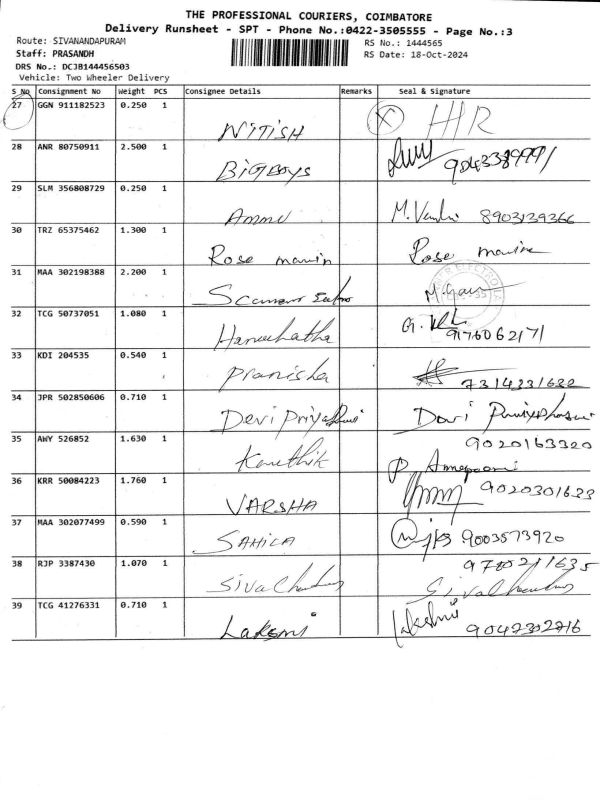 THE PROFESSIONAL COURIERS, COIMBATORE
Delivery Runsheet - SPT - Phone No.:0422-3505555 - Page No.:3
Route: SIVANANDAPURAM RS No.: 1444565
Staff: PRASANDH RS Date: 18-Oct-2024
DRS No.: DCJB144456503
Vehicle: Two Wheeler Delivery
S No Consignment No Weight PCS Consignee Details Remarks Seal & Signature
27 GGN 911182523 0.250 1
NITISH X H/R
28 ANR 80750911 2.500 1
BIGBOYS
29 SLM 356808729 0.250 1
Ammu 8903139366
30 TRZ 65375462 1.300 1
Rose marin Rose marine
31 MAA 302198388 2.200 1
32 TCG 50737051 1.080 1
9176062171
33 KDI 204535 0.540 1
Pranisha 7314231622
34 JPR 502850606 0.710 1
Devi Priya
35 AWY 526852 1.630 1 9020163320
Karthik
36 KRR 50084223 1.760 1
VARSHA 9020301633
37 MAA 302077499 0.590 1
SAHILA 9003573920
38 RJP 3387430 1.070 1
39 TCG 41276331 0.710 1
Laksmi Lakshmi 9042302716